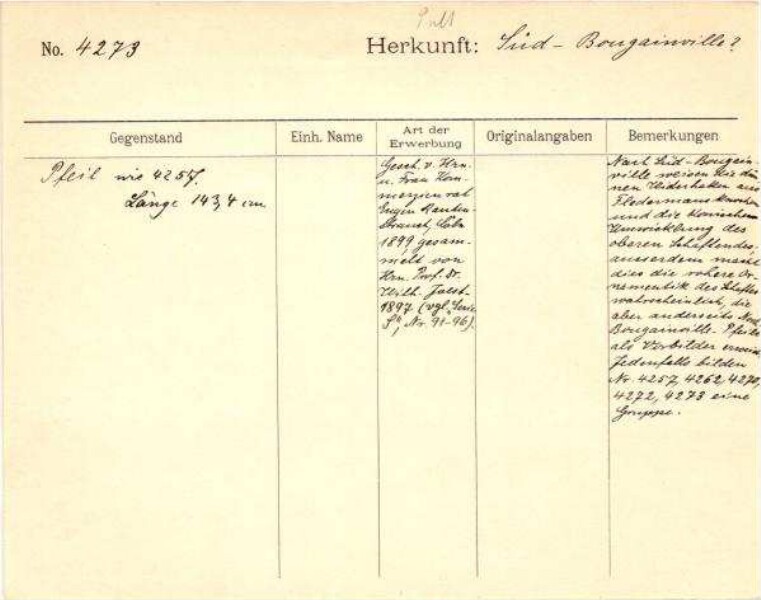 Pult
No. 4273
Herkunft: Süd - Bougainville?
Gegenstand
Einh. Name
Art der
Erwerbung
Originalangaben
Bemerkungen
Pfeil wie 4257.
Länge 143,4 cm
Gesch. v. Hrn.
u. Frau Kom-
merzienrat
Eugen Rauten-
strauch, Cöln
1899 gesam-
melt von
Hrn. Prof. Dr.
Wilh. Joest
1897 (vgl. „Serie
S", Nr. 91-96).
Nach Süd-Bougain-
ville weisen die dün-
nen Widerhaken aus
Fledermausknochen
und die konischen
Umwicklung des
oberen Schaftendes,
ausserdem macht
dies die rohere Or-
namentik des Schaftes
wahrscheinlich, die
aber anderseits Nord
Bougainville-Pfeile
als Vorbilder
Jedenfalls bilden
Nr. 4257, 4262, 4270,
4272, 4273 eine
Gruppe.